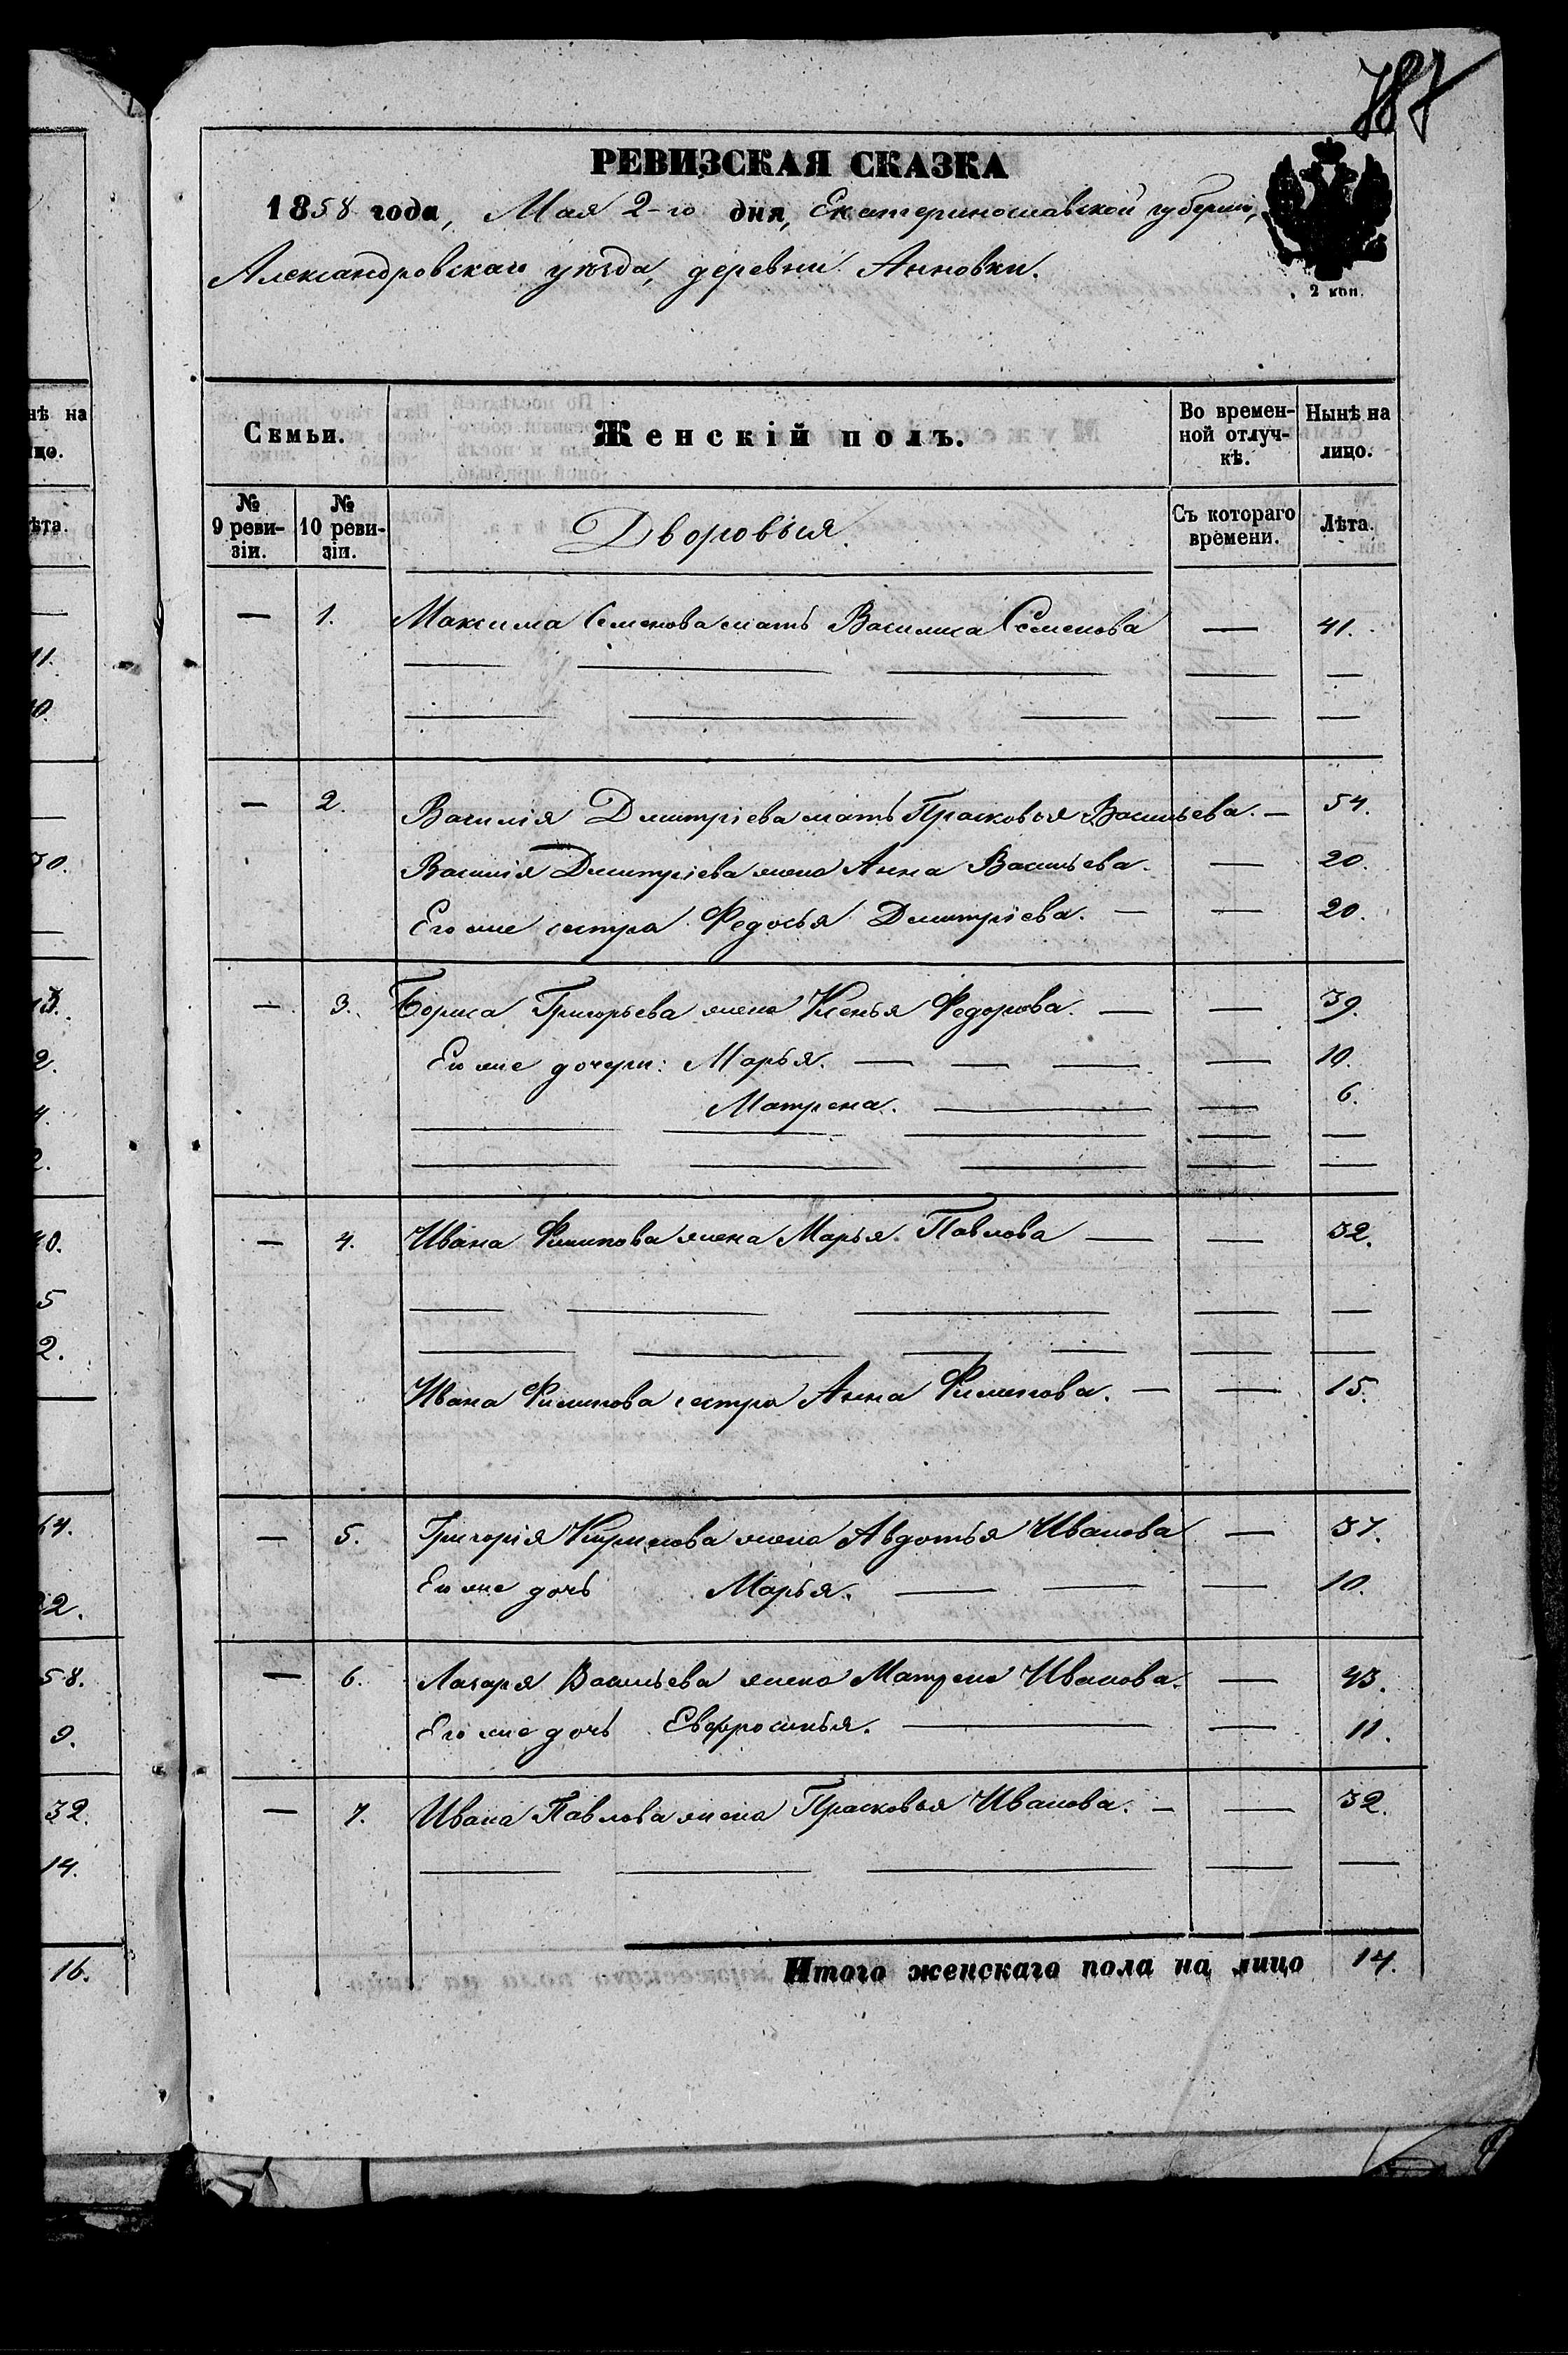 787
РЕВИЗСКАЯ СКАЗКА
1858 года, Мая 2-го дня, Екатеринославской губерніи,
Александровскаго уѣзда, деревни Анновки.
2 коп.
нѣ на
цо.
ѣта.
11.
30.
2.
5
2.
64.
58.
9.
32.
14.
16.
Семьи. Женскій полъ. Во времен- Нынѣ на
ной отлуч- лицо.
кѣ.
№ № 
9 реви- 10 реви- Дворовыя. Съ котораго Лѣта.
зіи. зіи. времени.
— 1. Максима Семенова мать Василиса Семенова — 41.
— 2. Василія Дмитріева мать Прасковья Васильева. — 54.
Василія Дмитріева жена Анна Васильева. — 20.
Его же сестра Федосья Дмитріева. — — 20.
— 3. Бориса Григорьева жена Ксенья Федорова. — — 39.
Его же дочери: Марья. — — — — 10.
Матрена. — — 6.
— 4. Ивана Филипова жена Марья Павлова — — 32.
Ивана Филипова сестра Анна Филипова. — — 15.
— 5. Григорія Кирилова жена Авдотья Иванова — 37.
Его же дочь Марья. — — — 10.
— 6. Лазаря Васильева жена Матрена Иванова. — 43.
Его же дочь Евфросинья. — — 11.
— 7. Ивана Павлова жена Прасковья Иванова. — — 32.
Итого женскаго пола на лицо 14.